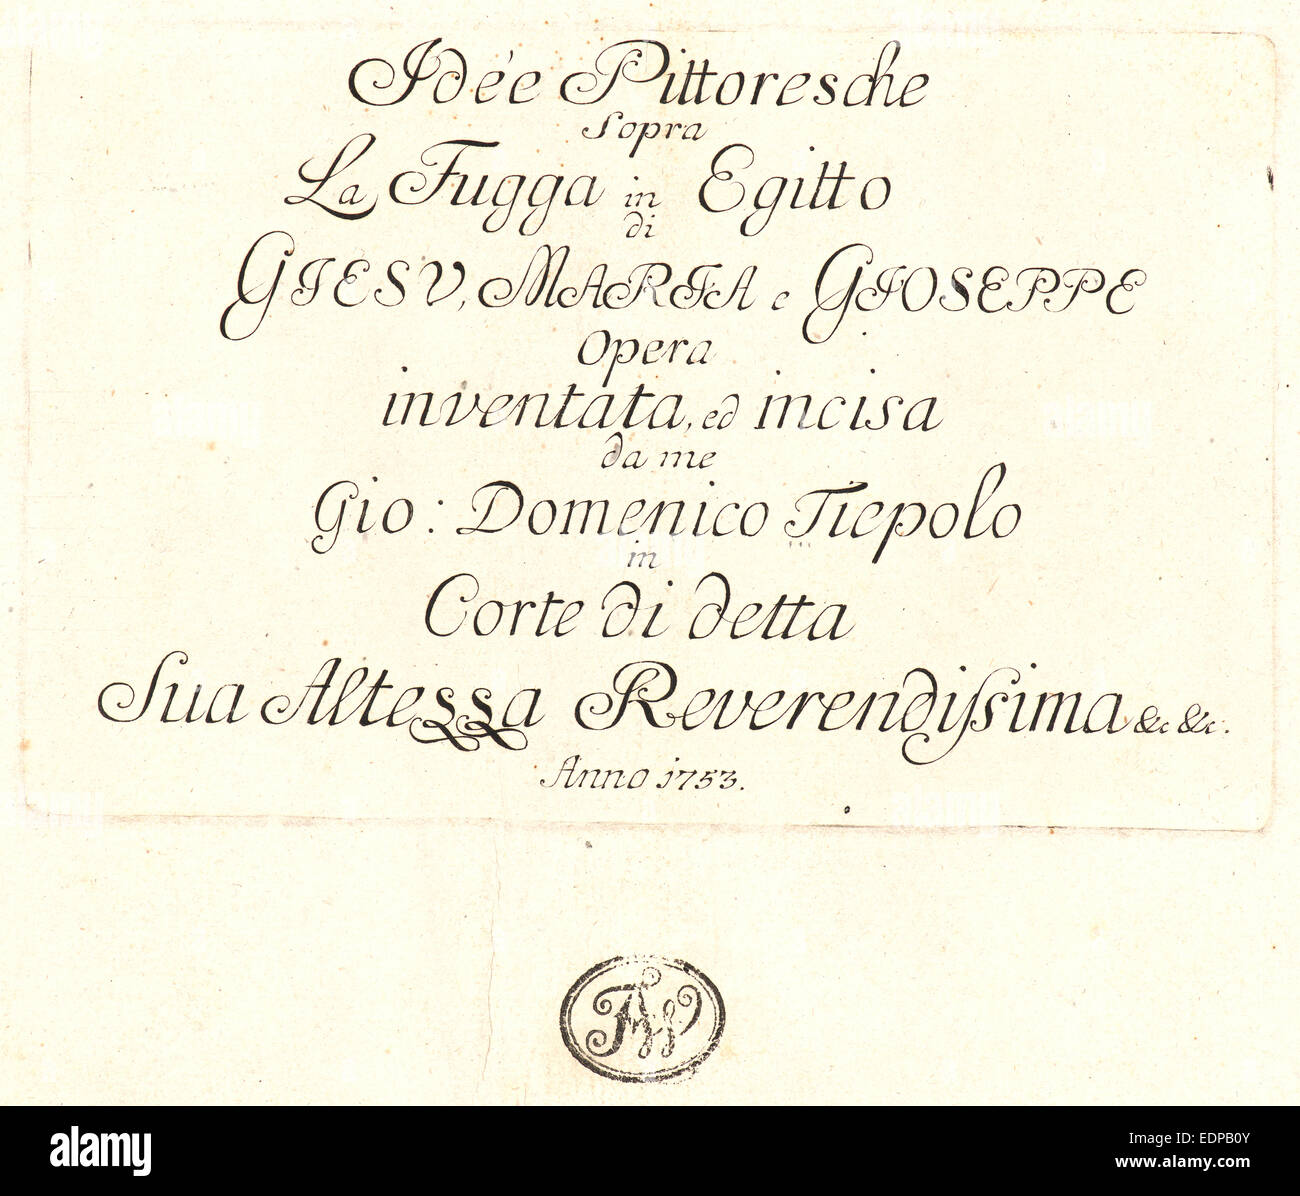 Idée Pittoresche
Sopra
La Fugga in Egitto
di
GIESV, MARIA e GIOSEPPE
Opera
inventata, ed incisa
da me
Gio: Domenico Tiepolo
in
Corte di detta
Sua Altessa Reverendissima &c &c.
Anno 1753.
alamy
Image ID: EDPB0Y
www.alamy.com